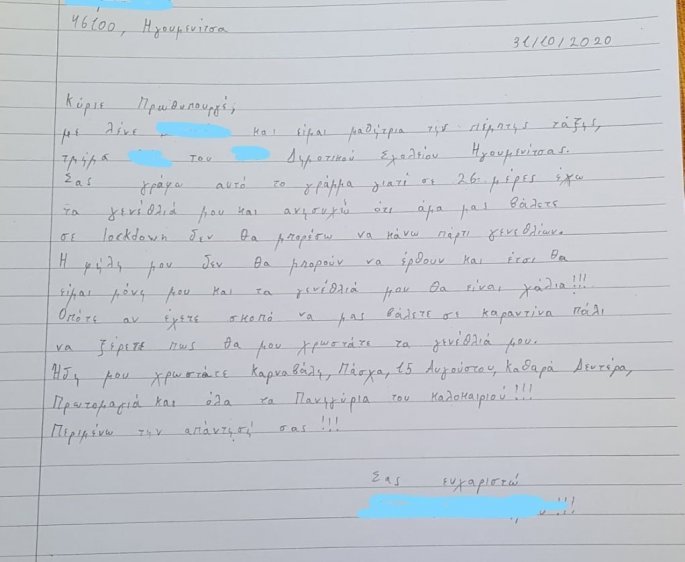 46100, Ηγουμενίτσα
31/10/2020
Κύριε Πρωθυπουργέ,
με λένε και είμαι μαθήτρια της πέμπτης τάξης,
τμήμα του Δημοτικού Σχολείου Ηγουμενίτσας.
Σας γράφω αυτό το γράμμα γιατί σε 26 μέρες έχω
τα γενέθλιά μου και ανησυχώ ότι άμα μας βάλετε
σε lockdown δεν θα μπορέσω να κάνω πάρτι γενεθλίων.
Η φίλη μου δεν θα μπορούν να έρθουν και έτσι θα
είμαι μόνη μου και τα γενέθλιά μου θα είναι χάλια!!!
Οπότε αν έχετε σκοπό να μας βάλετε σε καραντίνα πάλι
να ξέρετε πως θα μου χρωστάτε τα γενέθλιά μου.
Ήδη μου χρωστάτε Καρναβάλη, Πάσχα, 15 Αυγούστου, Καθαρά Δευτέρα,
Πρωτομαγιά και όλα τα Πανηγύρια του καλοκαιριού!!!
Περιμένω την απάντησή σας!!!
Σας ευχαριστώ
!!!